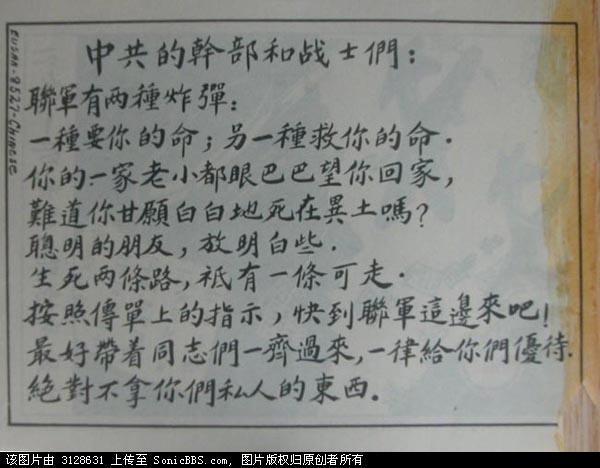 EUSAK-8527-Chinese
中共的幹部和战士們：
聯軍有两種炸彈：
一種要你的命；另一種救你的命．
你的一家老小都眼巴巴望你回家，
難道你甘願白白地死在異土嗎？
聰明的朋友，放明白些．
生死两條路，祇有一條可走．
按照傳單上的指示，快到聯軍這邊來吧！
最好帶着同志們一齊過來，一律給你們優待．
絕對不拿你們私人的東西．
该图片由 3128631 上传至 SonicBBS.com, 图片版权归原创者所有